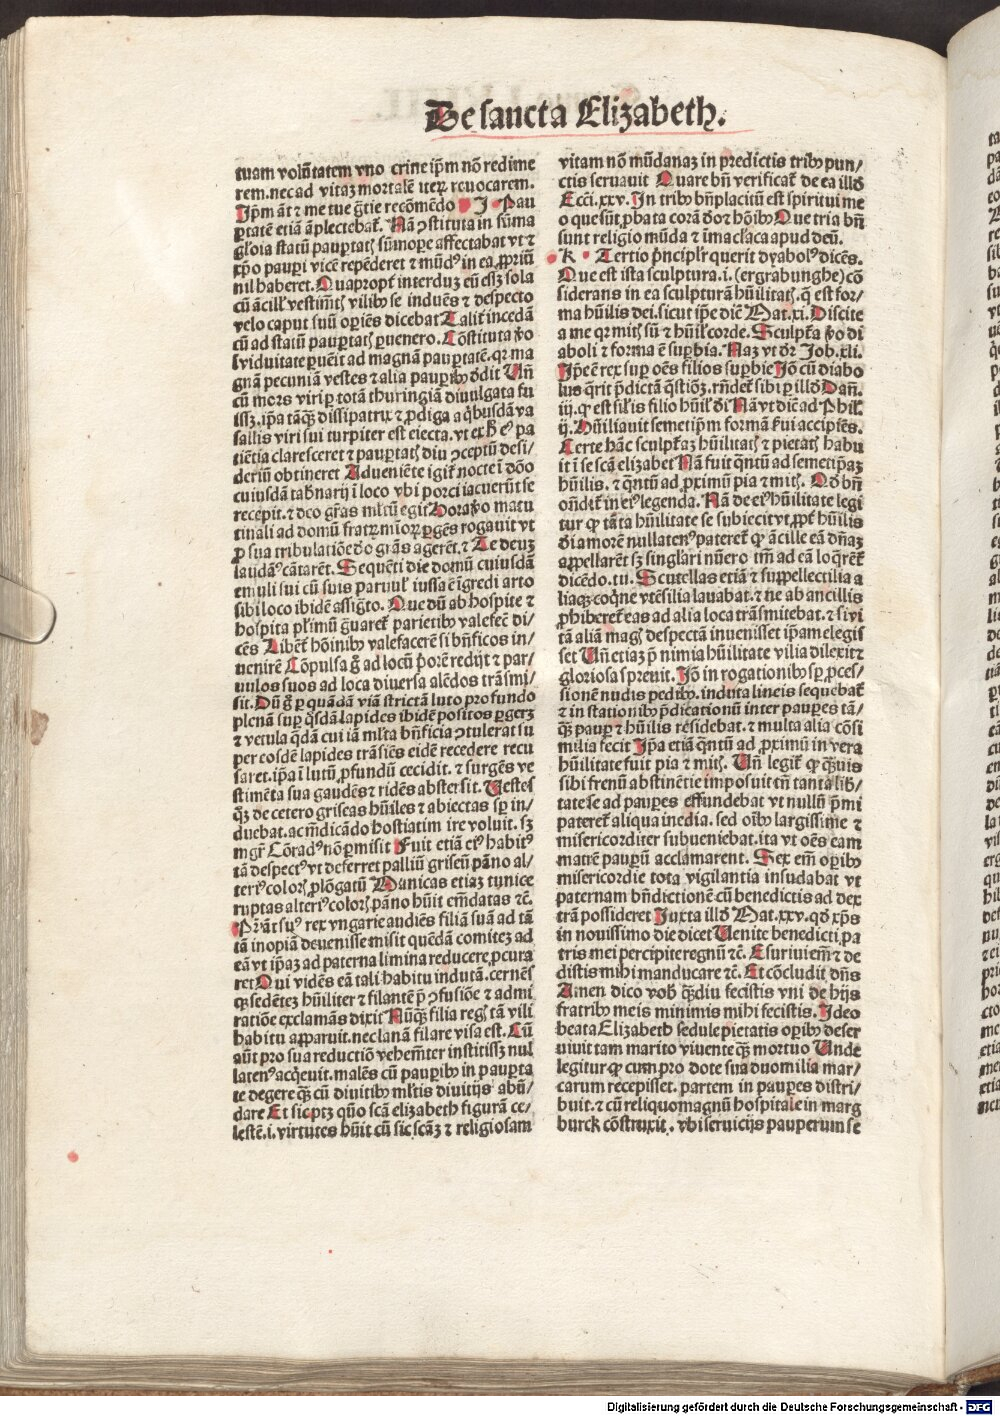 De sancta Elizabeth.
tuam volūtatem vno crine ip̄m nō redime
rem. nec ad vitaꝫ mortalē iteꝝ reuocarem.
Ip̄m āt ⁊ me tue gr̄tie recōmēdo I Pau
ꝑtatē etiā āplectebat᷑. Nā ꝯstituta in sūma
gl'oia statū pauꝑtatꝭ sūmoꝑe affectabat vt ⁊
xp̄o pauꝑi vicē repēderet ⁊ mūdꝰ in ea ꝓpriū
nil haberet. Quapropt᷑ interduꝫ cū eēꝫ sola
cū ācill' vestimētꝭ vilibꝰ se induēs ⁊ despecto
velo caput suū oꝑiēs dicebat Talit᷑ incedā
cū ad statū pauꝑtatꝭ ꝑuenero. Cōstituta v̄o
ī viduitate ꝑuēit ad magnā pauꝑtatē. qꝛ ma
gnā pecuniā vestes ⁊ alia pauꝑibꝰ ddit Un̄
cū mors viri ꝑ totā thuringiā diuulgata fu
issꝫ. ip̄a tāqꝫ dissipatrix ⁊ ꝓdiga a qͥbusdā va
sallis viri sui turpiter est eiecta. vt ex h̄ eiꝰ pa
tiētia claresceret ⁊ pauꝑtatꝭ diu ꝯceptū desi/
deriū obtineret Adueniēte igit᷑ nocte ī dōo
cuiusdā tab̄narij ī loco vbi porci iacuerūt se
recepit. ⁊ deo gr̄as ml'tū egit Hora v̄o matu
tinali ad domū fratrꝫ mīoꝝ ꝑgēs rogauit vt
ꝓ sua tribulatiōe do grās agerēt. ⁊ Te deuꝫ
laudāꝰ cātarēt. Sequēti die domū cuiusdā
emuli sui cū suis paruul' iussa ē īgredi arto
sibi loco ibidē assigͣto. Que dū ab hospite ⁊
hospita pl'imū gͣuaret᷑ parietibꝰ valefec̄ di/
cēs Libēt᷑ hōinibꝰ valefacerē si bn̄ficos in/
uenirē Cōpulsa gͦ ad locū p̄orē redijt ⁊ par/
uulos suos ad loca diuersa alēdos trāsmi/
sit. Dū gͦ ꝑ quādā viā strictā luto profundo
plenā suꝑ qͣsdā lapides ibidē positos ꝑgeꝫ
⁊ vetula qͣdā cui iā ml'ta bn̄ficia ꝯtulerat su
per eosdē lapides trāsiēs eidē recedere recu
saret. ip̄a ī lutū ꝓfundū cecidit. ⁊ surgēs ve
stimēta sua gaudēs ⁊ ridēs abstersit. Uestes
qͦꝫ de cetero griseas hūiles ⁊ abiectas sꝑ in/
duebat. ac mēdicādo hostiatim ire voluit. sꝫ
mgr̄ Cōradꝰ nō ꝑmisit Fuit etiā eiꝰ habitꝰ
tā despectꝰ vt deferret palliū griseū pāno al/
teriꝰ colorꝭ ꝓlōgatū Manicas etiaꝫ tunice
ruptas alteriꝰ colorꝭ pāno hūit emēdatas ⁊c̄.
Pr̄ āt suꝰ rex vngarie audiēs filiā suā ad tā
tā inopiā deuenisse misit quēdā comiteꝫ ad
eā vt ip̄aꝫ ad paterna limina reducere ꝓcura
ret Qui vidēs eā tali habitu indutā. cernēs
qꝫ sedēteꝫ hūiliter ⁊ filantē p̄ ꝯfusiōe ⁊ admi
ratiōe exclamās dixit Nūqͣꝫ filia regꝭ tā vili
habitu apparuit. nec lanā filare visa est. Cū
aūt pro sua reductiōe vehemēter institissꝫ nul
latenꝰ acqͥeuit. malēs cū pauꝑibꝰ in pauꝑta
te degere qͣꝫ cū diuitibꝰ ml'tis diuitijs abū/
dare Et sic ptꝫ qūo scā elizabeth figurā ce/
lestē. i. virtutes hūit cū sic scāꝫ ⁊ religiosam
vitam nō mūdanaꝫ in predictis tribꝰ pun/
ctis seruauit Quare bn̄ verificat᷑ de ea illd̄
Ecci. xxv. In tribꝰ bn̄placitū est spiritui me
o que sūt ꝓbata corā deo ⁊ hōibꝰ Que tria bn̄
sunt religio mūda ⁊ īmaclaca apud deū.
K Tertio p̄ncipl'r querit dyabolꝰ dicēs.
Que est ista sculptura. i. (ergrabunghe) cō
siderans in ea sculpturā hūilitatꝭ. q̄ est for/
ma hūilis dei. sicut ip̄e dic̄ Mat. xi. Discite
a me qꝛ mitꝭ sū ⁊ hūil' corde. Sculpt᷑a v̄o di
aboli ⁊ forma ē suꝑbia. Naꝫ vt dr̄ Job. xli.
Ip̄e ē rex suꝑ oēs filios suꝑbie Iō cū diabo
lus q̄rit p̄dictā q̄stiōꝫ. rn̄det᷑ sibi ꝑ illd̄ Dan̄.
iij. qꝫ est sil'is filio hūil' di Nā vt dic̄ ad Phil'.
ij. Hūiliauit semetip̄m formā ẜui accipiēs.
Certe hāc sculpt᷑aꝫ hūilitatꝭ ⁊ pietatꝭ habu
it ī se scā elizabet Nā fuit qͣntū ad semetip̄aꝫ
hūilis. ⁊ qͣntū ad ꝓximū pia ⁊ mitꝭ. Qd̄ bn̄
on̄dit᷑ in eiꝰ legenda. Nā de eiꝰ hūilitate legi
tur qꝫ tāta hūilitate se subiecit vt ꝓpt᷑ hūilis
di amorē nullatenꝰ pateret᷑ qꝫ ācille eā dn̄aꝫ
appellarēt sꝫ singl'ari nūero tm̄ ad eā loq̄rēt᷑
dicēdo. tu. Scutellas etiā ⁊ suppellectilia a
liaqꝫ coqͥne vtēsilia lauabat. ⁊ ne ab ancillis
ꝓhiberet᷑ eas ad alia loca trāsmitebat. ⁊ si vi
tā aliā magꝭ despectā inuenisset ip̄am elegis
set Un̄ etiaꝫ p̄ nimia hūilitate vilia dilexit ⁊
gloriosa spreuit. Iō in rogationibꝰ sꝑ ꝓces/
sionē nudis pedibꝰ. induta lineis sequebat᷑
⁊ in stationibꝰ p̄dicationū inter pauꝑes tā/
qͣꝫ pauꝑ ⁊ hūilis residebat. ⁊ multa alia cōsi
milia fecit Ip̄a etiā qͣntū ad ꝓximū in vera
hūilitate fuit pia ⁊ mitꝭ. Un̄ legit᷑ qꝫ qͣꝫuis
sibi frenū abstinētie imposuit tn̄ tanta lib̄/
tate se ad pauꝑes effundebat vt nullū p̄mi
pateret᷑ aliqua inedia. sed oībꝰ largissime ⁊
misericorditer subueniebat. ita vt oēs eam
matrē pauꝑū acclamarent. Sex em̄ oꝑibꝰ
misericordie tota vigilantia insudabat vt
paternam bn̄dictionē cū benedictis ad dex
trā possideret Juxta illd̄ Mat. xxv. qd̄ xp̄s
in nouissimo die dicet Uenite benedicti. pa
tris mei percipite regnū ⁊c̄. Esuriui em̄ ⁊ de
distis mihi manducare ⁊c̄. Et cōcludit dn̄s
Amen dico vob̄ qͣꝫdiu fecistis vni de hijs
fratribꝰ meis minimis mihi fecistis. Ideo
beata Elizabeth sedule pietatis oꝑibꝰ deser
uiuit tam marito viuente qͣꝫ mortuo Unde
legitur qꝫ cum pro dote sua duo milia mar/
carum recepisset. partem in pauꝑes distri/
buit. ⁊ cū reliquo magnū hospitale in marg
burck cōstruxit. vbi seruicijs pauperum se
Digitalisierung gefördert durch die Deutsche Forschungsgemeinschaft - DFG